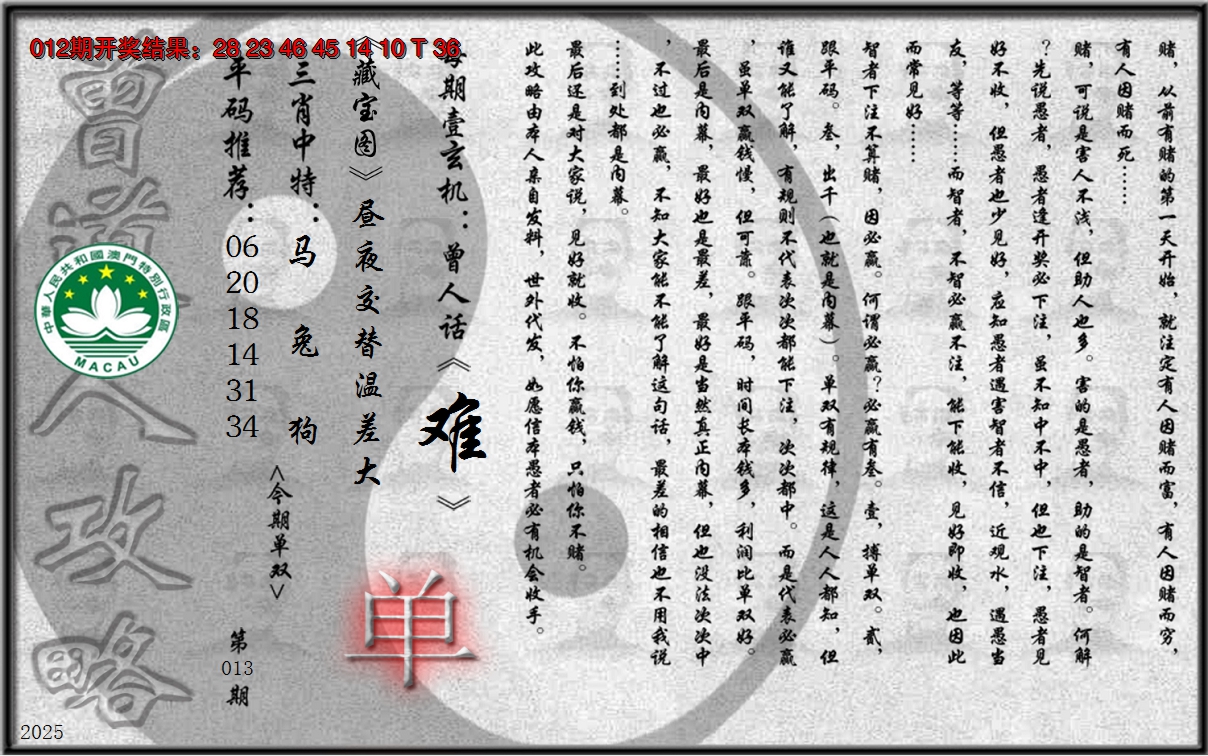 012期开奖结果：28 23 46 45 14 10 T 36
赌，从前有赌的第一天开始，就注定有人因赌而富，有人因赌而穷，
有人因赌而死……
赌，可说是害人不浅，但助人也多。害的是愚者，助的是智者。何解
？先说愚者，愚者逢开奖必下注，虽不知中不中，但也下注，愚者见
好不收，但愚者也少见好，应知愚者遇害智者不信，近观水，遇愚当
友，等等……而智者，不智必赢不注，能下能收，见好即收，也因此
而常见好……
智者下注不算赌，因必赢。何谓必赢？必赢有叁。壹，搏单双。贰，
跟平码。叁，出千（也就是内幕）。单双有规律，这是人人都知，但
谁又能了解，有规则不代表次次都能下注，次次都中。而是代表必赢
，虽单双赢钱慢，但可靠。跟平码，时间长本钱多，利润比单双好。
最后是内幕，最好也是最差，最好是当然真正内幕，但也没法次次中
，不过也必赢，不知大家能不能了解这句话，最差的相信也不用我说
……到处都是内幕。
最后还是对大家说，见好就收。不怕你赢钱，只怕你不赌。
此攻略由本人亲自发料，世外代发，如愿信本愚者必有机会收手。
每期壹玄机：曾人话《难》
《藏宝图》昼夜交替温差大
单
三肖中特：马 兔 狗
<今期单双>
平码推荐：06 20 18 14 31 34
第013期
曾道人攻略
中華人民共和國澳門特別行政區
MACAU
2025